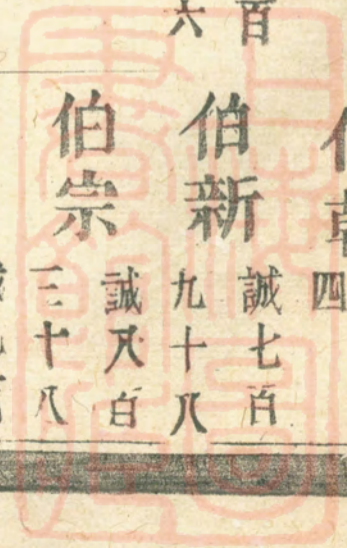 百
六
四
伯新
誠七百
九十八
伯宗
誠八百
三十八